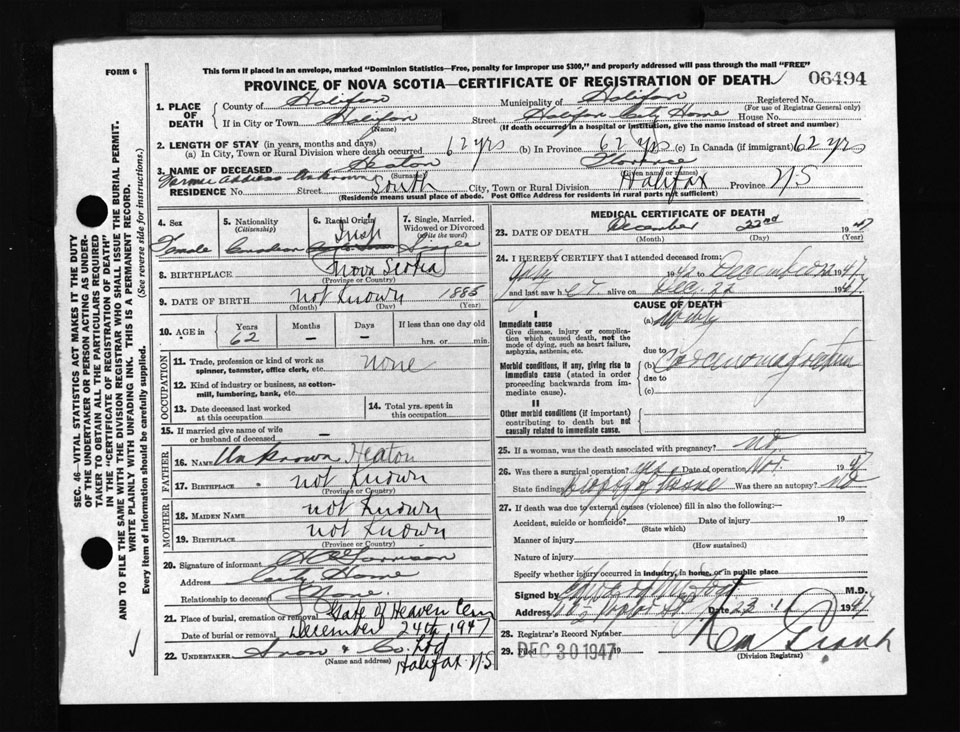 FORM 6
This form if placed in an envelope, marked "Dominion Statistics—Free, penalty for improper use $300," and properly addressed will pass through the mail "FREE"
PROVINCE OF NOVA SCOTIA—CERTIFICATE OF REGISTRATION OF DEATH
06494
1. PLACE OF DEATH
County of Halifax Municipality of Halifax Registered No.
(For use of Registrar General only)
If in City or Town Halifax Street Halifax City Home House No.
(Name) (If death occurred in a hospital or institution, give the name instead of street and number)
2. LENGTH OF STAY (in years, months and days)
(a) In City, Town or Rural Division where death occurred 62 yrs (b) In Province 62 yrs (c) In Canada (if immigrant) 62 yrs
3. NAME OF DECEASED Heaton Florence
(Surname) (Given name or names)
Former address unknown
RESIDENCE No. Street South City, Town or Rural Division Halifax Province N.S
(Residence means usual place of abode. Post Office Address for residents in rural parts not sufficient)
4. Sex
Female
5. Nationality
(Citizenship)
Canadian
6. Racial Origin
Irish
7. Single, Married, Widowed or Divorced
(Write the word)
Single
8. BIRTHPLACE Nova Scotia
(Province or Country)
9. DATE OF BIRTH not known 1885
(Month) (Day) (Year)
10. AGE in Years Months Days If less than one day old
62 — — hrs. or min.
OCCUPATION
11. Trade, profession or kind of work as spinner, teamster, office clerk, etc. none
12. Kind of industry or business, as cotton-mill, lumbering, bank, etc.
13. Date deceased last worked at this occupation
14. Total yrs. spent in this occupation
15. If married give name of wife or husband of deceased —
FATHER
16. NAME Unknown Heaton
17. BIRTHPLACE not known
(Province or Country)
MOTHER
18. MAIDEN NAME not known
19. BIRTHPLACE not known
(Province or Country)
20. Signature of informant
Address City Home
Relationship to deceased None.
21. Place of burial, cremation or removal Gate of Heaven Cem
Date of burial or removal December 24th 1947
22. UNDERTAKER Snow & Co. Ltd
(Name and address)
Halifax N.S
MEDICAL CERTIFICATE OF DEATH
23. DATE OF DEATH December 22nd 1947
(Month) (Day) (Year)
24. I HEREBY CERTIFY that I attended deceased from:
July 1942 to December 22 1947
and last saw her alive on Dec. 22 1947
CAUSE OF DEATH
I
Immediate cause
Give disease, injury or complication which caused death, not the mode of dying, such as heart failure, asphyxia, asthenia, etc.
(a)
due to
Morbid conditions, if any, giving rise to immediate cause (stated in order proceeding backwards from immediate cause).
(b) Carcinoma of rectum
due to
(c)
II
Other morbid conditions (if important) contributing to death but not causally related to immediate cause.
25. If a woman, was the death associated with pregnancy? no
26. Was there a surgical operation? yes Date of operation Nov. 1947
State findings biopsy of tissue Was there an autopsy? no
27. If death was due to external causes (violence) fill in also the following:—
Accident, suicide or homicide? Date of injury 19
(State which)
Manner of injury
(How sustained)
Nature of injury
Specify whether injury occurred in industry, in home, or in public place
Signed by M.D.
Address Date 23 1947
28. Registrar's Record Number
29. Filed DEC 30 1947 19
(Division Registrar)
SEC. 46—VITAL STATISTICS ACT MAKES IT THE DUTY
OF THE UNDERTAKER OR PERSON ACTING AS UNDER-
TAKER TO OBTAIN ALL THE PARTICULARS REQUIRED
IN THE "CERTIFICATE OF REGISTRATION OF DEATH"
AND TO FILE THE SAME WITH THE DIVISION REGISTRAR WHO SHALL ISSUE THE BURIAL PERMIT.
WRITE PLAINLY WITH UNFADING INK. THIS IS A PERMANENT RECORD.
Every item of information should be carefully supplied. (See reverse side for instructions.)